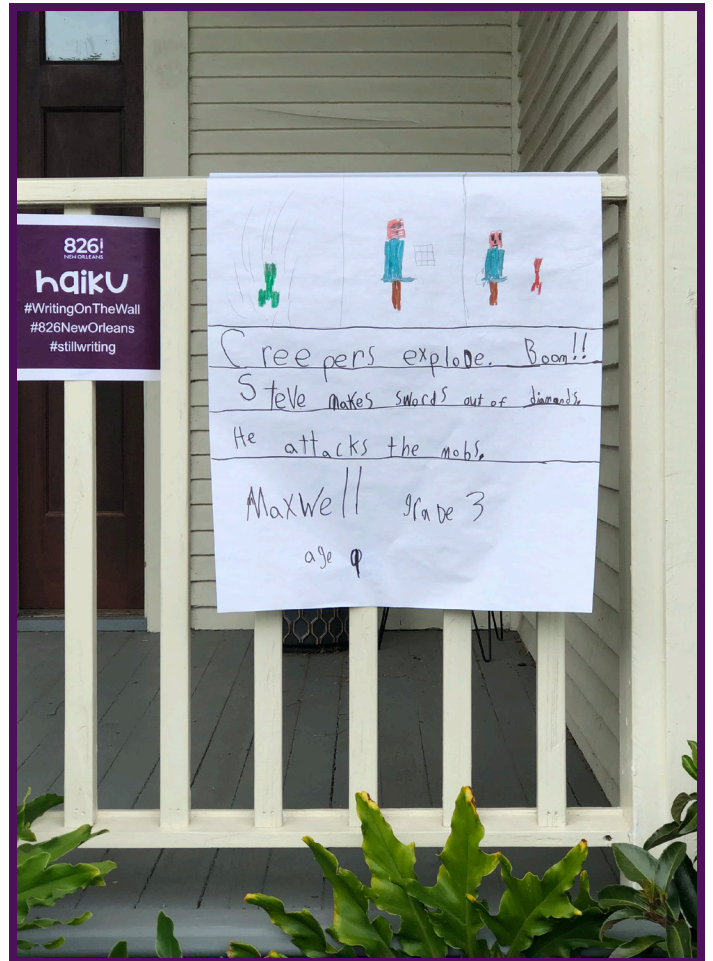 826!
NEW ORLEANS
haiku
#WritingOnTheWall
#826NewOrleans
#stillwriting
Creepers explode. Boom!!
Steve makes swords out of diamonds.
He attacks the mobs.
Maxwell grade 3
age 9